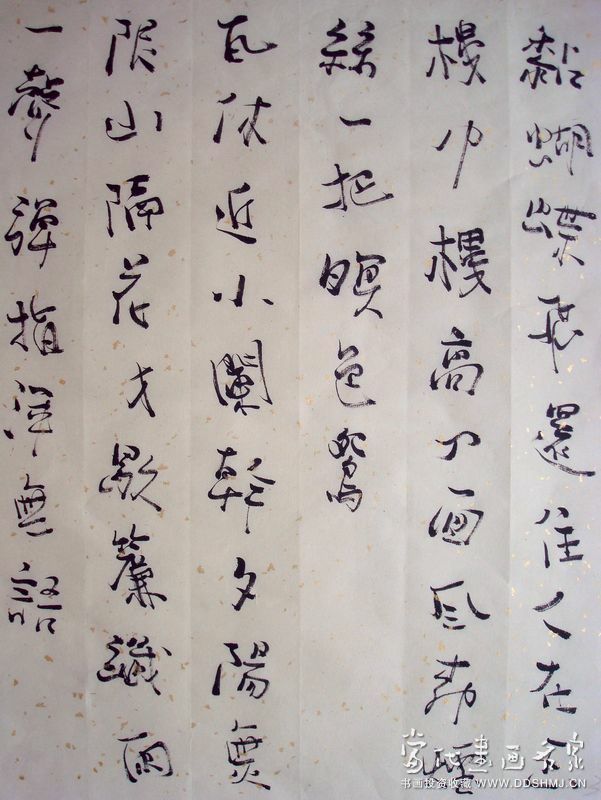 黏蝴蝶飛還住人在玉
樓中樓高四面風柳煙
絲一把暝色鴛
瓦休近小闌幹夕陽無
限山隔花才歇簾纖雨
一聲彈指渾無語
当代書画名家
书画投资收藏 WWW.DDSHMJ.CN